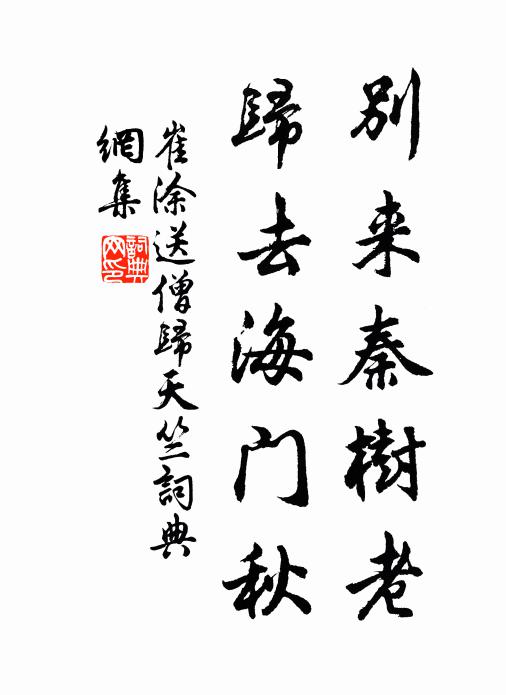 別来秦樹老
歸去海門秋
崔涂送僧歸天竺詞典
網集
詞典
网印